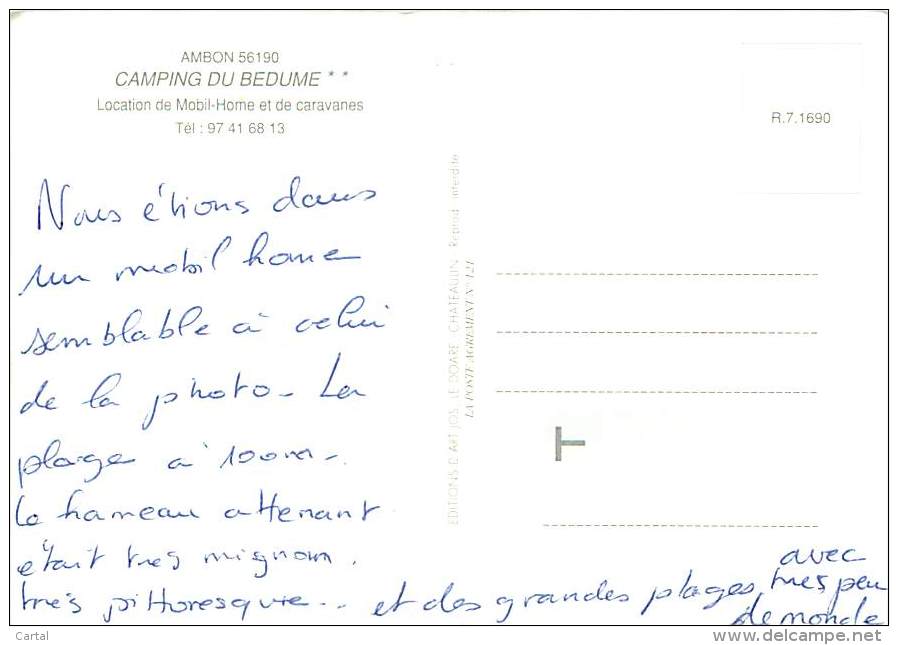 AMBON 56190
CAMPING DU BEDUME * *
Location de Mobil-Home et de caravanes
Tél : 97 41 68 13
R.7.1690
Nous étions dans
un mobil home
semblable à celui
de la photo - La
plage à 100m -.
Le hameau attenant
était très mignon.
très pittoresque... et des grandes plages avec
très peu
de monde
EDITIONS D'ART JOS LE DOARE - CHATEAULIN - Reprod. interdite
LA POSTE AGREMENT N° 121
Cartal
www.delcampe.net